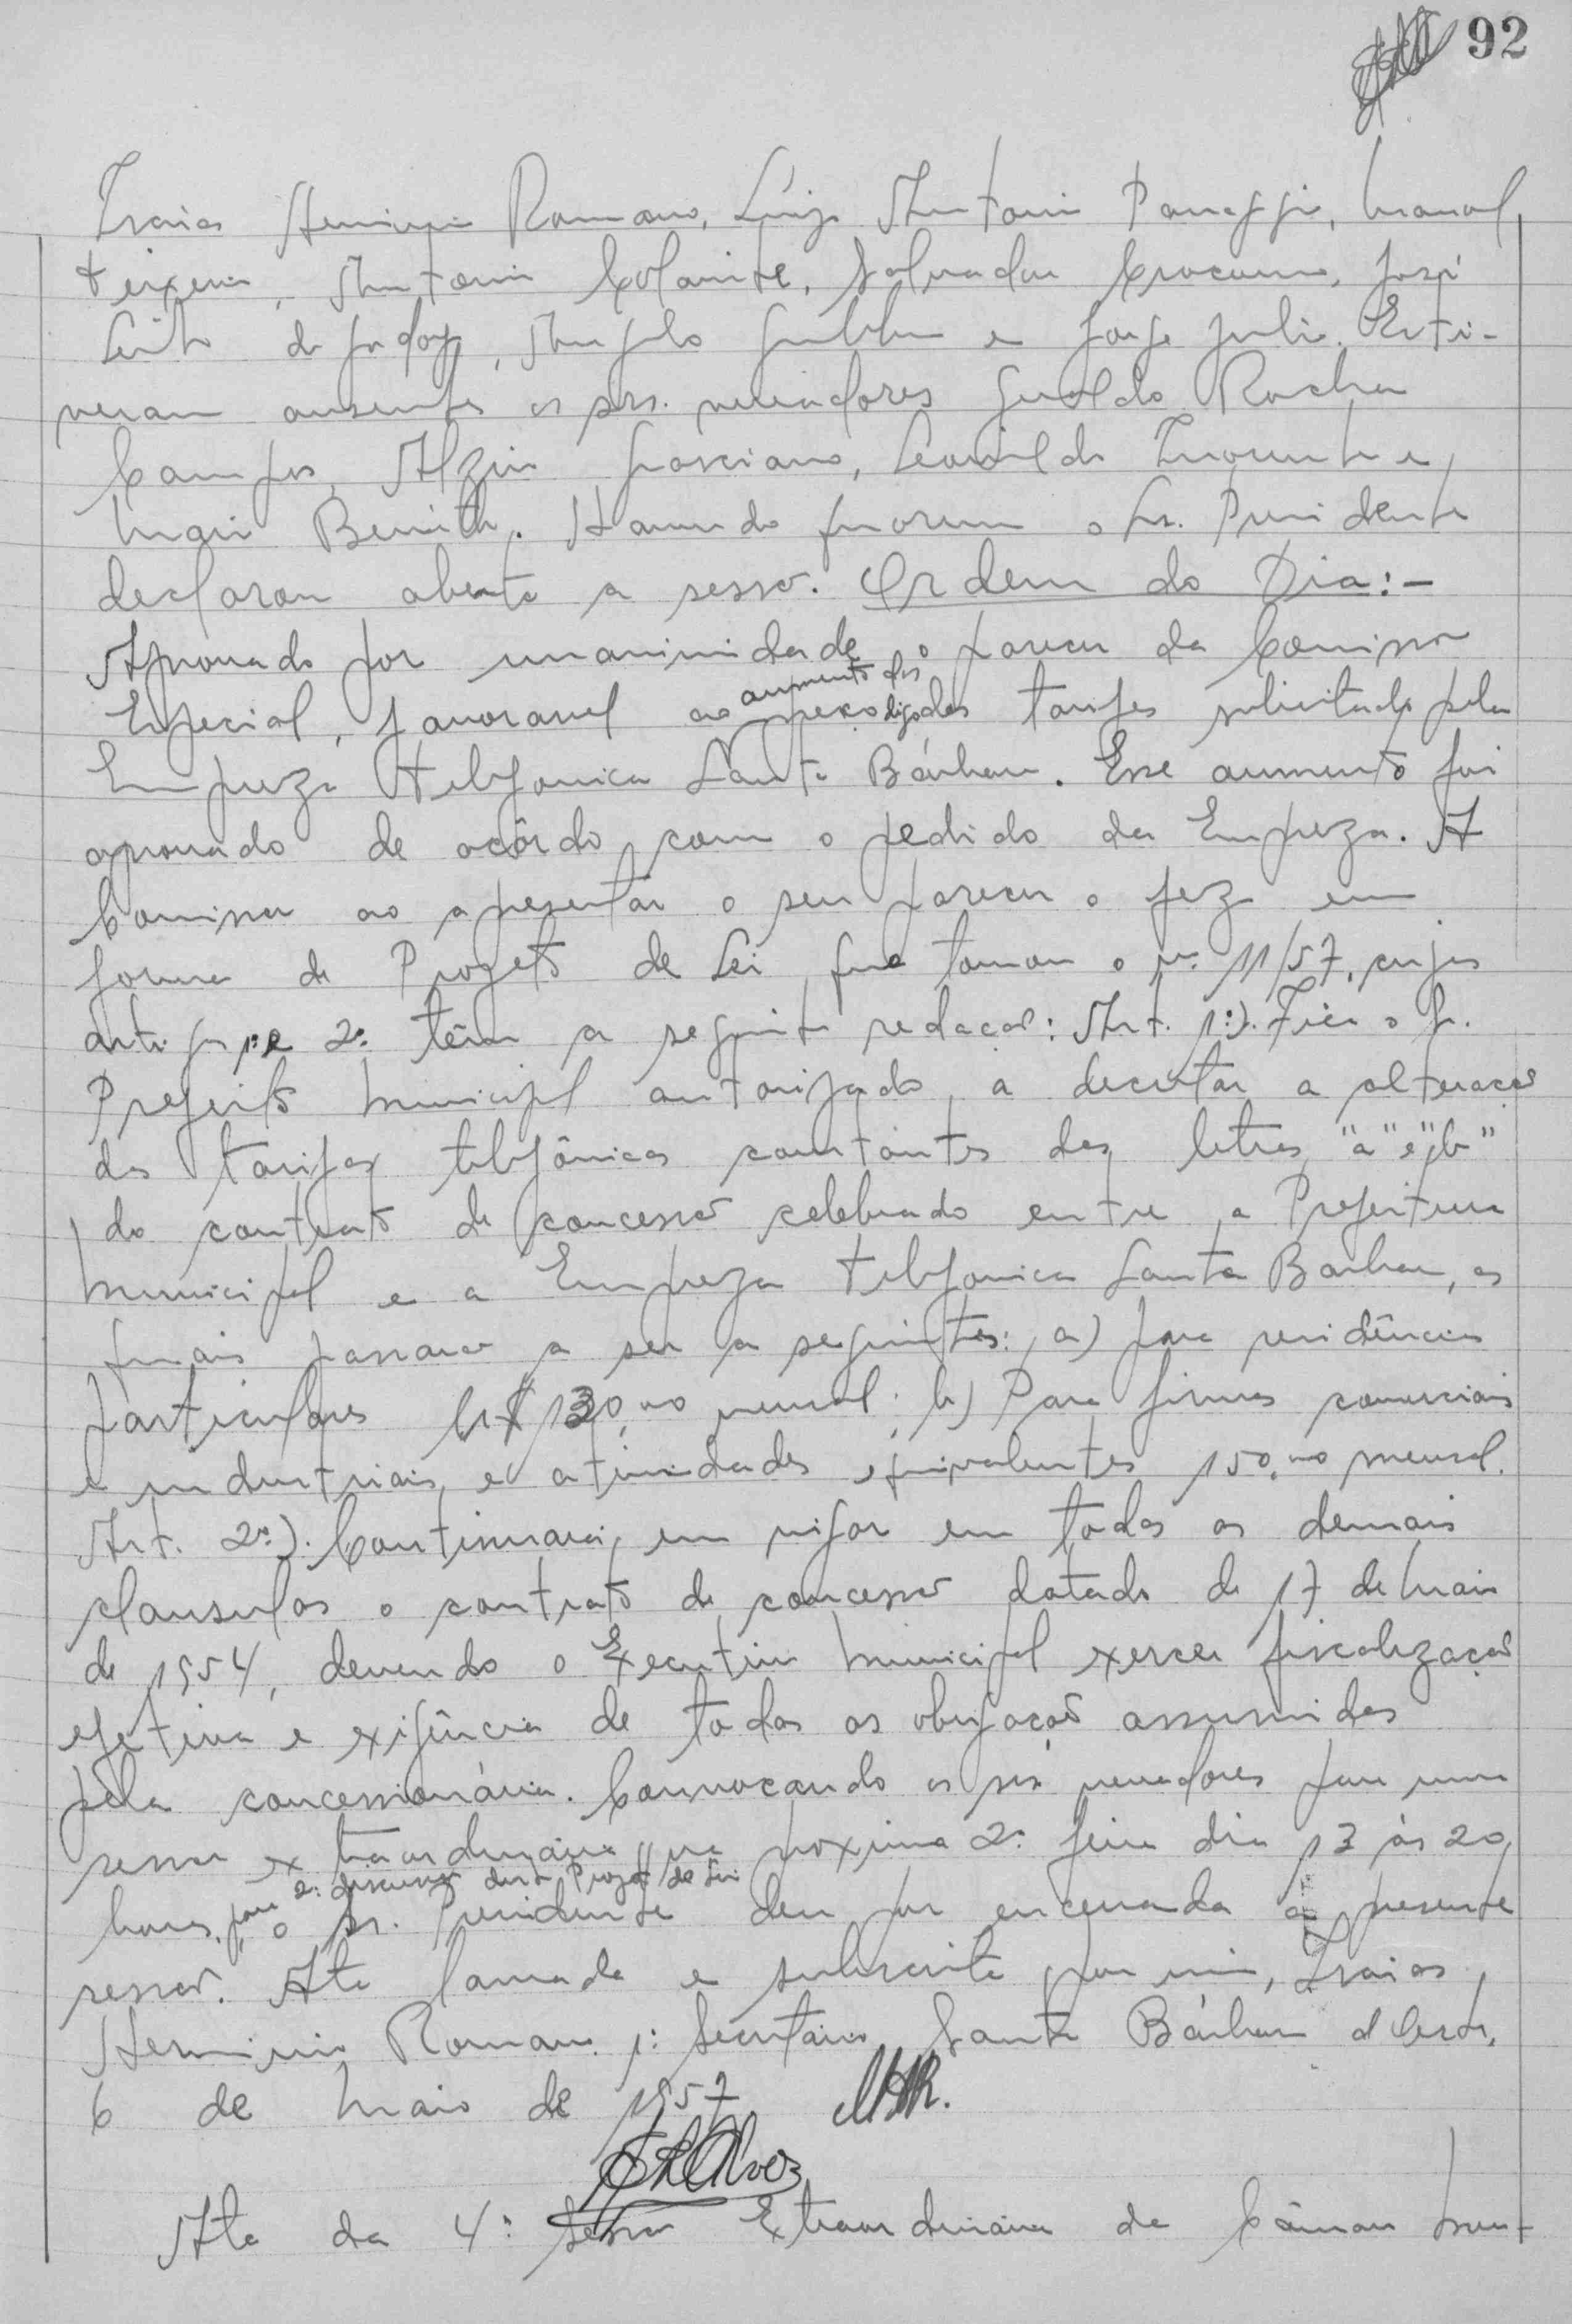 92
Izaias Herminio Romano, Luiz Antonio Panaggio, Manoel
Teixeira, Antonio Colainte, Salvador Crocomo, José
Leite de Godoy, Angelo Giubbina e Jorge Juliz. Esti-
veram ausentes os srs. vereadores Geraldo Rocha
Campos, Alzir Graciano, Leonildo Zirondi e,
Mario Benith. Havendo quorum o Sr. Presidente
declarou aberta a sessão. Ordem do Dia:-
Aprovado por unanimidade o parecer da Comissão
aumento das
Especial, favoravel ao preço digo das tarifas solicitado pela
Empreza Telefonica Santa Bárbara. Esse aumento foi
aprovado de acôrdo com o pedido da Empreza. A
Comissão ao apresentar o seu parecer o fez em
forma de Projeto de Lei que tomou o nº 11/57, cujos
artigos 1º e 2º têm a seguinte redação: Art. 1º). Fica o Sr.
Prefeito Municipal autorizado a decretar a alteração
das tarifas telefônicas constantes das letras "a" e "b"
do contrato de concessão celebrado entre a Prefeitura
Municipal e a Empreza Telefonica Santa Barbara, as
quais passarão a ser as seguintes: a) para residências
particulares Cr$ 130,00 mensal; b) Para firmas comerciais
e industriais e atividades equivalentes 150,00 mensal.
Art. 2º). Continuará em vigor em todas as demais
clausulas o contrato de concessão datado de 17 de Maio
de 1954, devendo o Executivo Municipal exercer fiscalização
efetiva e exigência de todas as obrigações assumidas
pela concessionária. Convocando os srs. vereadores para uma
sessão extraordinária na proxima 2ª feira dia 13 ás 20
para 2ª discussão deste Projeto de Lei
horas, o Sr. Presidente deu por encerrada a presente
sessão. Ata lavrada e subscrita por mim, Izaias
Herminio Romano 1º Secretário Santa Bárbara d'Oeste,
6 de Maio de 1957
Ata da 4ª Sessão Extraordinária da Câmara Mun-